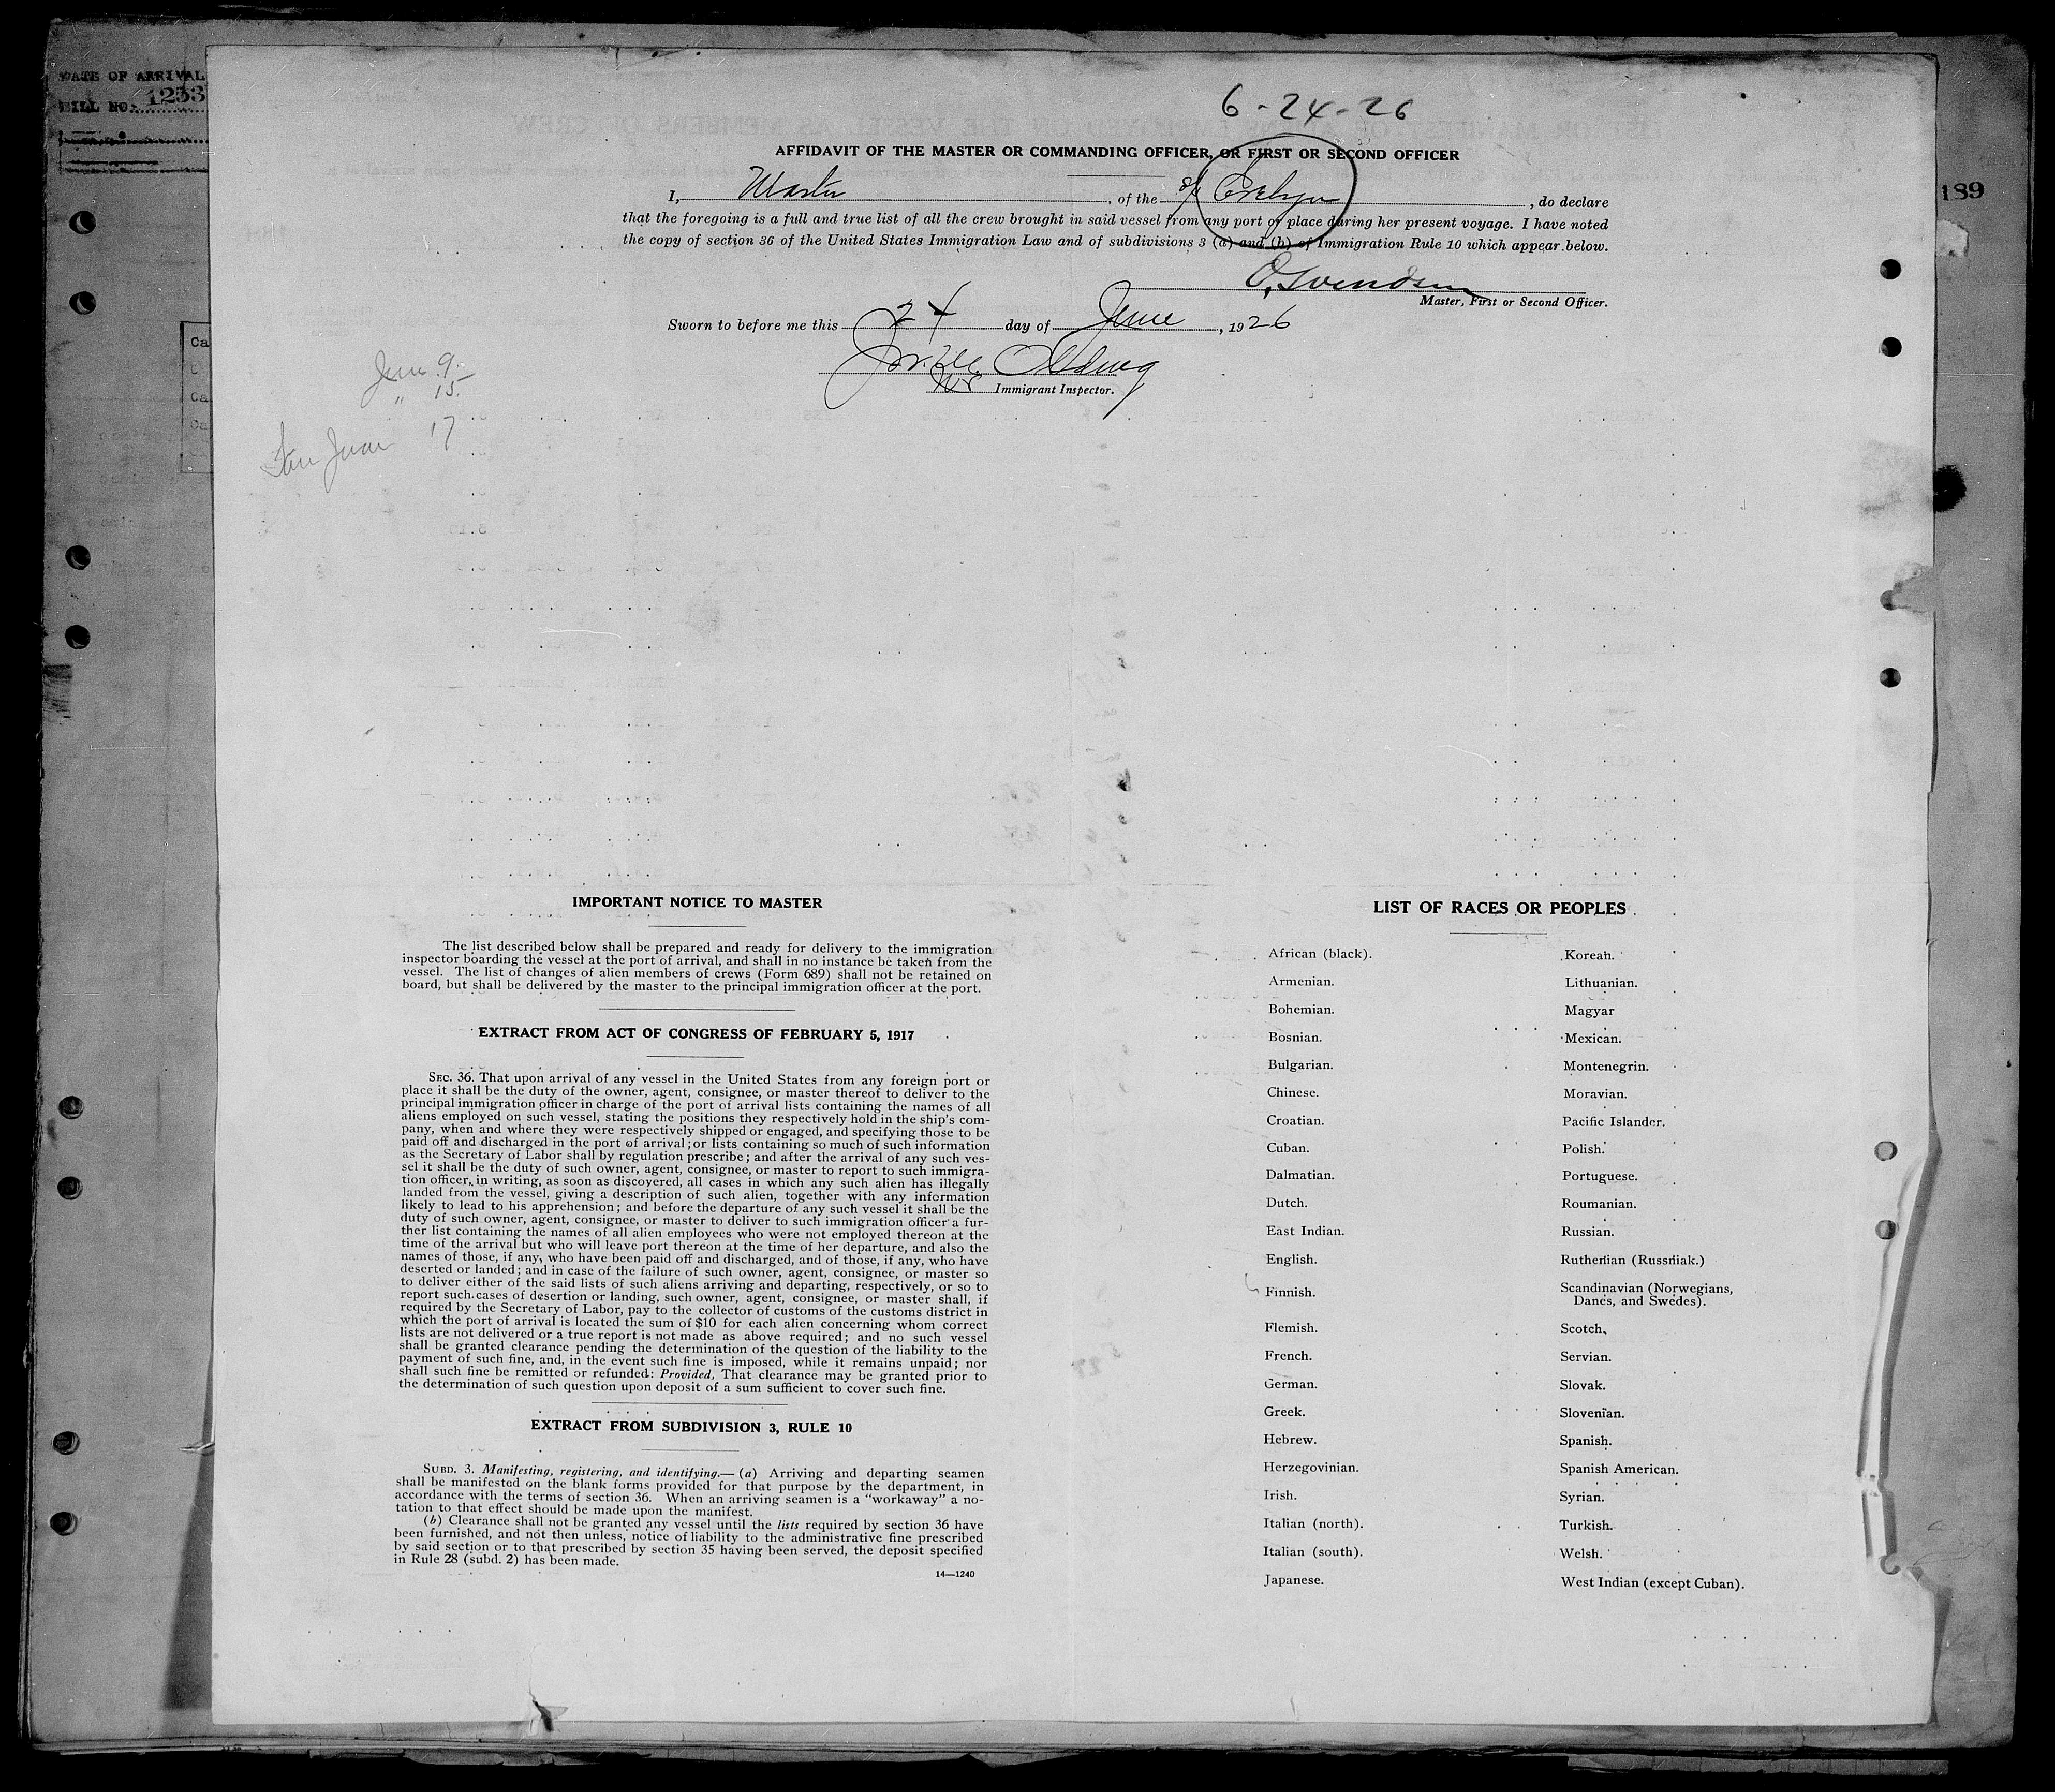 DATE OF ARRIVAL
BILL NO. 1233
189
6-24-26
AFFIDAVIT OF THE MASTER OR COMMANDING OFFICER, OR FIRST OR SECOND OFFICER
I, Master, of the Evelyn, do declare
that the foregoing is a full and true list of all the crew brought in said vessel from any port or place during her present voyage. I have noted
the copy of section 36 of the United States Immigration Law and of subdivisions 3 (a) and (b) of Immigration Rule 10 which appear below.
O. Svendsen
Master, First or Second Officer.
Sworn to before me this 24 day of June, 1926
Immigrant Inspector.
June 9.
" 15.
San Juan 17
IMPORTANT NOTICE TO MASTER
The list described below shall be prepared and ready for delivery to the immigration
inspector boarding the vessel at the port of arrival, and shall in no instance be taken from the
vessel. The list of changes of alien members of crews (Form 689) shall not be retained on
board, but shall be delivered by the master to the principal immigration officer at the port.
EXTRACT FROM ACT OF CONGRESS OF FEBRUARY 5, 1917
SEC. 36. That upon arrival of any vessel in the United States from any foreign port or
place it shall be the duty of the owner, agent, consignee, or master thereof to deliver to the
principal immigration officer in charge of the port of arrival lists containing the names of all
aliens employed on such vessel, stating the positions they respectively hold in the ship's com-
pany, when and where they were respectively shipped or engaged, and specifying those to be
paid off and discharged in the port of arrival; or lists containing so much of such information
as the Secretary of Labor shall by regulation prescribe; and after the arrival of any such ves-
sel it shall be the duty of such owner, agent, consignee, or master to report to such immigra-
tion officer, in writing, as soon as discovered, all cases in which any such alien has illegally
landed from the vessel, giving a description of such alien, together with any information
likely to lead to his apprehension; and before the departure of any such vessel it shall be the
duty of such owner, agent, consignee, or master to deliver to such immigration officer a fur-
ther list containing the names of all alien employees who were not employed thereon at the
time of the arrival but who will leave port thereon at the time of her departure, and also the
names of those, if any, who have been paid off and discharged, and of those, if any, who have
deserted or landed; and in case of the failure of such owner, agent, consignee, or master so
to deliver either of the said lists of such aliens arriving and departing, respectively, or so to
report such cases of desertion or landing, such owner, agent, consignee, or master shall, if
required by the Secretary of Labor, pay to the collector of customs of the customs district in
which the port of arrival is located the sum of $10 for each alien concerning whom correct
lists are not delivered or a true report is not made as above required; and no such vessel
shall be granted clearance pending the determination of the question of the liability to the
payment of such fine, and, in the event such fine is imposed, while it remains unpaid; nor
shall such fine be remitted or refunded: Provided, That clearance may be granted prior to
the determination of such question upon deposit of a sum sufficient to cover such fine.
EXTRACT FROM SUBDIVISION 3, RULE 10
SUBD. 3. Manifesting, registering, and identifying.—(a) Arriving and departing seamen
shall be manifested on the blank forms provided for that purpose by the department, in
accordance with the terms of section 36. When an arriving seamen is a "workaway" a no-
tation to that effect should be made upon the manifest.
(b) Clearance shall not be granted any vessel until the lists required by section 36 have
been furnished, and not then unless, notice of liability to the administrative fine prescribed
by said section or to that prescribed by section 35 having been served, the deposit specified
in Rule 28 (subd. 2) has been made.
14—1240
LIST OF RACES OR PEOPLES
African (black).
Armenian.
Bohemian.
Bosnian.
Bulgarian.
Chinese.
Croatian.
Cuban.
Dalmatian.
Dutch.
East Indian.
English.
Finnish.
Flemish.
French.
German.
Greek.
Hebrew.
Herzegovinian.
Irish.
Italian (north).
Italian (south).
Japanese.
Korean.
Lithuanian.
Magyar
Mexican.
Montenegrin.
Moravian.
Pacific Islander.
Polish.
Portuguese.
Roumanian.
Russian.
Ruthenian (Russniak.)
Scandinavian (Norwegians,
Danes, and Swedes).
Scotch.
Servian.
Slovak.
Slovenian.
Spanish.
Spanish American.
Syrian.
Turkish.
Welsh.
West Indian (except Cuban).